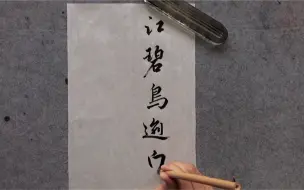 江碧鳥逾